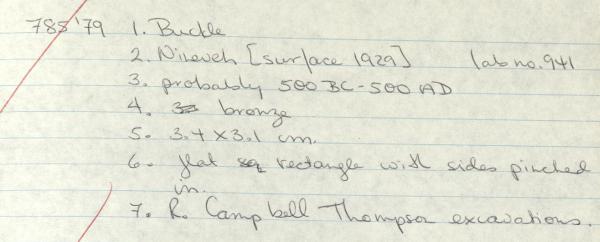 788'79 1. Buckle
2. Nineveh [surface 1929] lab no. 941
3. probably 500 BC - 500 AD
4. bronze
5. 3.4 x 3.1 cm.
6. flat rectangle with sides pinched
in.
7. R. Campbell Thompson excavations.